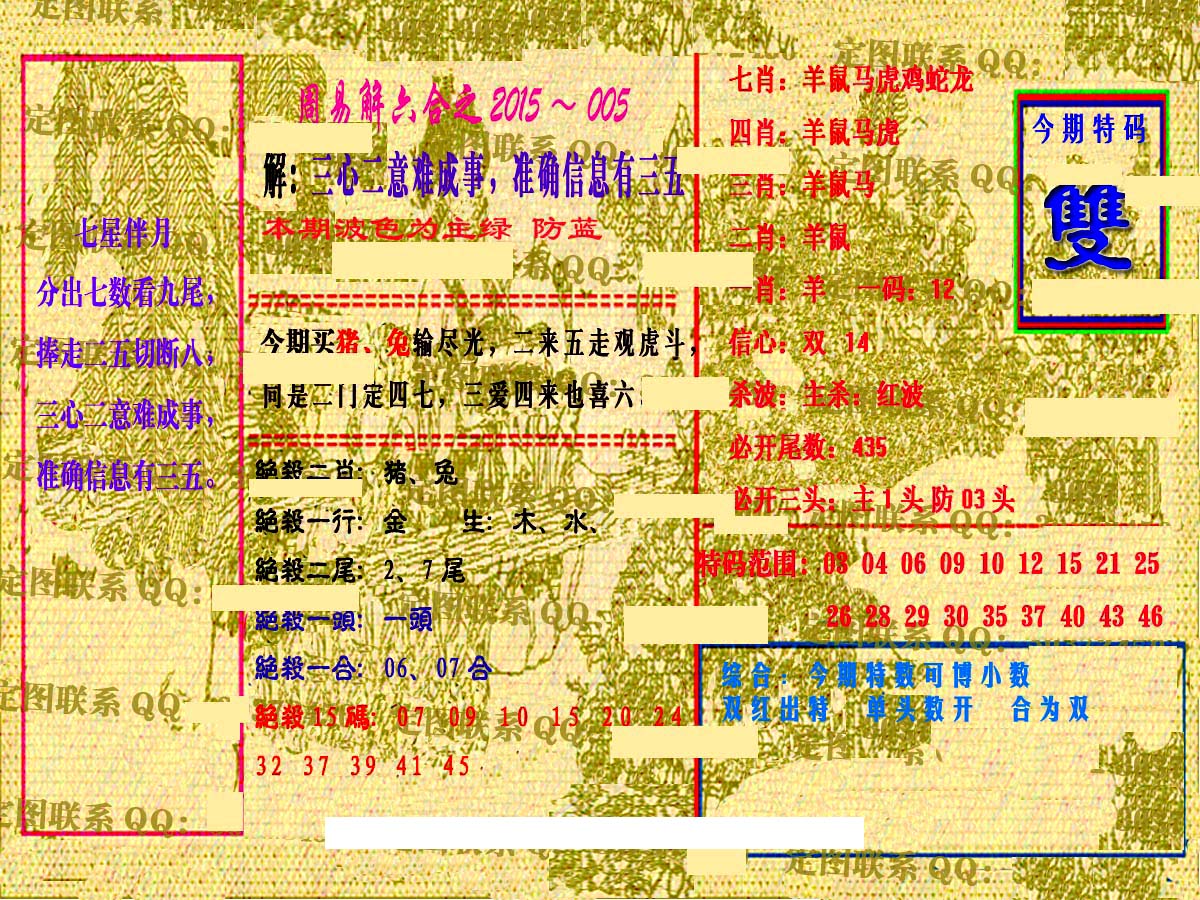 七星伴月
分出七数看九尾，
捧走二五切断八，
三心二意难成事，
准确信息有三五。
周易解六合之2015～005
解：三心二意难成事，准确信息有三五
本期波色为主绿 防蓝
今期买猪、兔输尽光，二来五走观虎斗，
同是二门定四七，三爱四来也喜六
絕殺二肖：猪、兔
絕殺一行：金 生：木、水、
絕殺二尾：2、7尾
絕殺一頭：一頭
絕殺一合：06、07合
絕殺15碼：07 09 10 15 20 24
32 37 39 41 45
七肖：羊鼠马虎鸡蛇龙
四肖：羊鼠马虎
三肖：羊鼠马
二肖：羊鼠
一肖：羊 一码：12
信心：双 14
杀波：主杀：红波
必开尾数：435
必开三头：主1头防03头
今期特码
雙
特码范围：03 04 06 09 10 12 15 21 25
26 28 29 30 35 37 40 43 46
综合：今期特数可博小数
双红出特，单头数开 合为双
定图联系QQ：